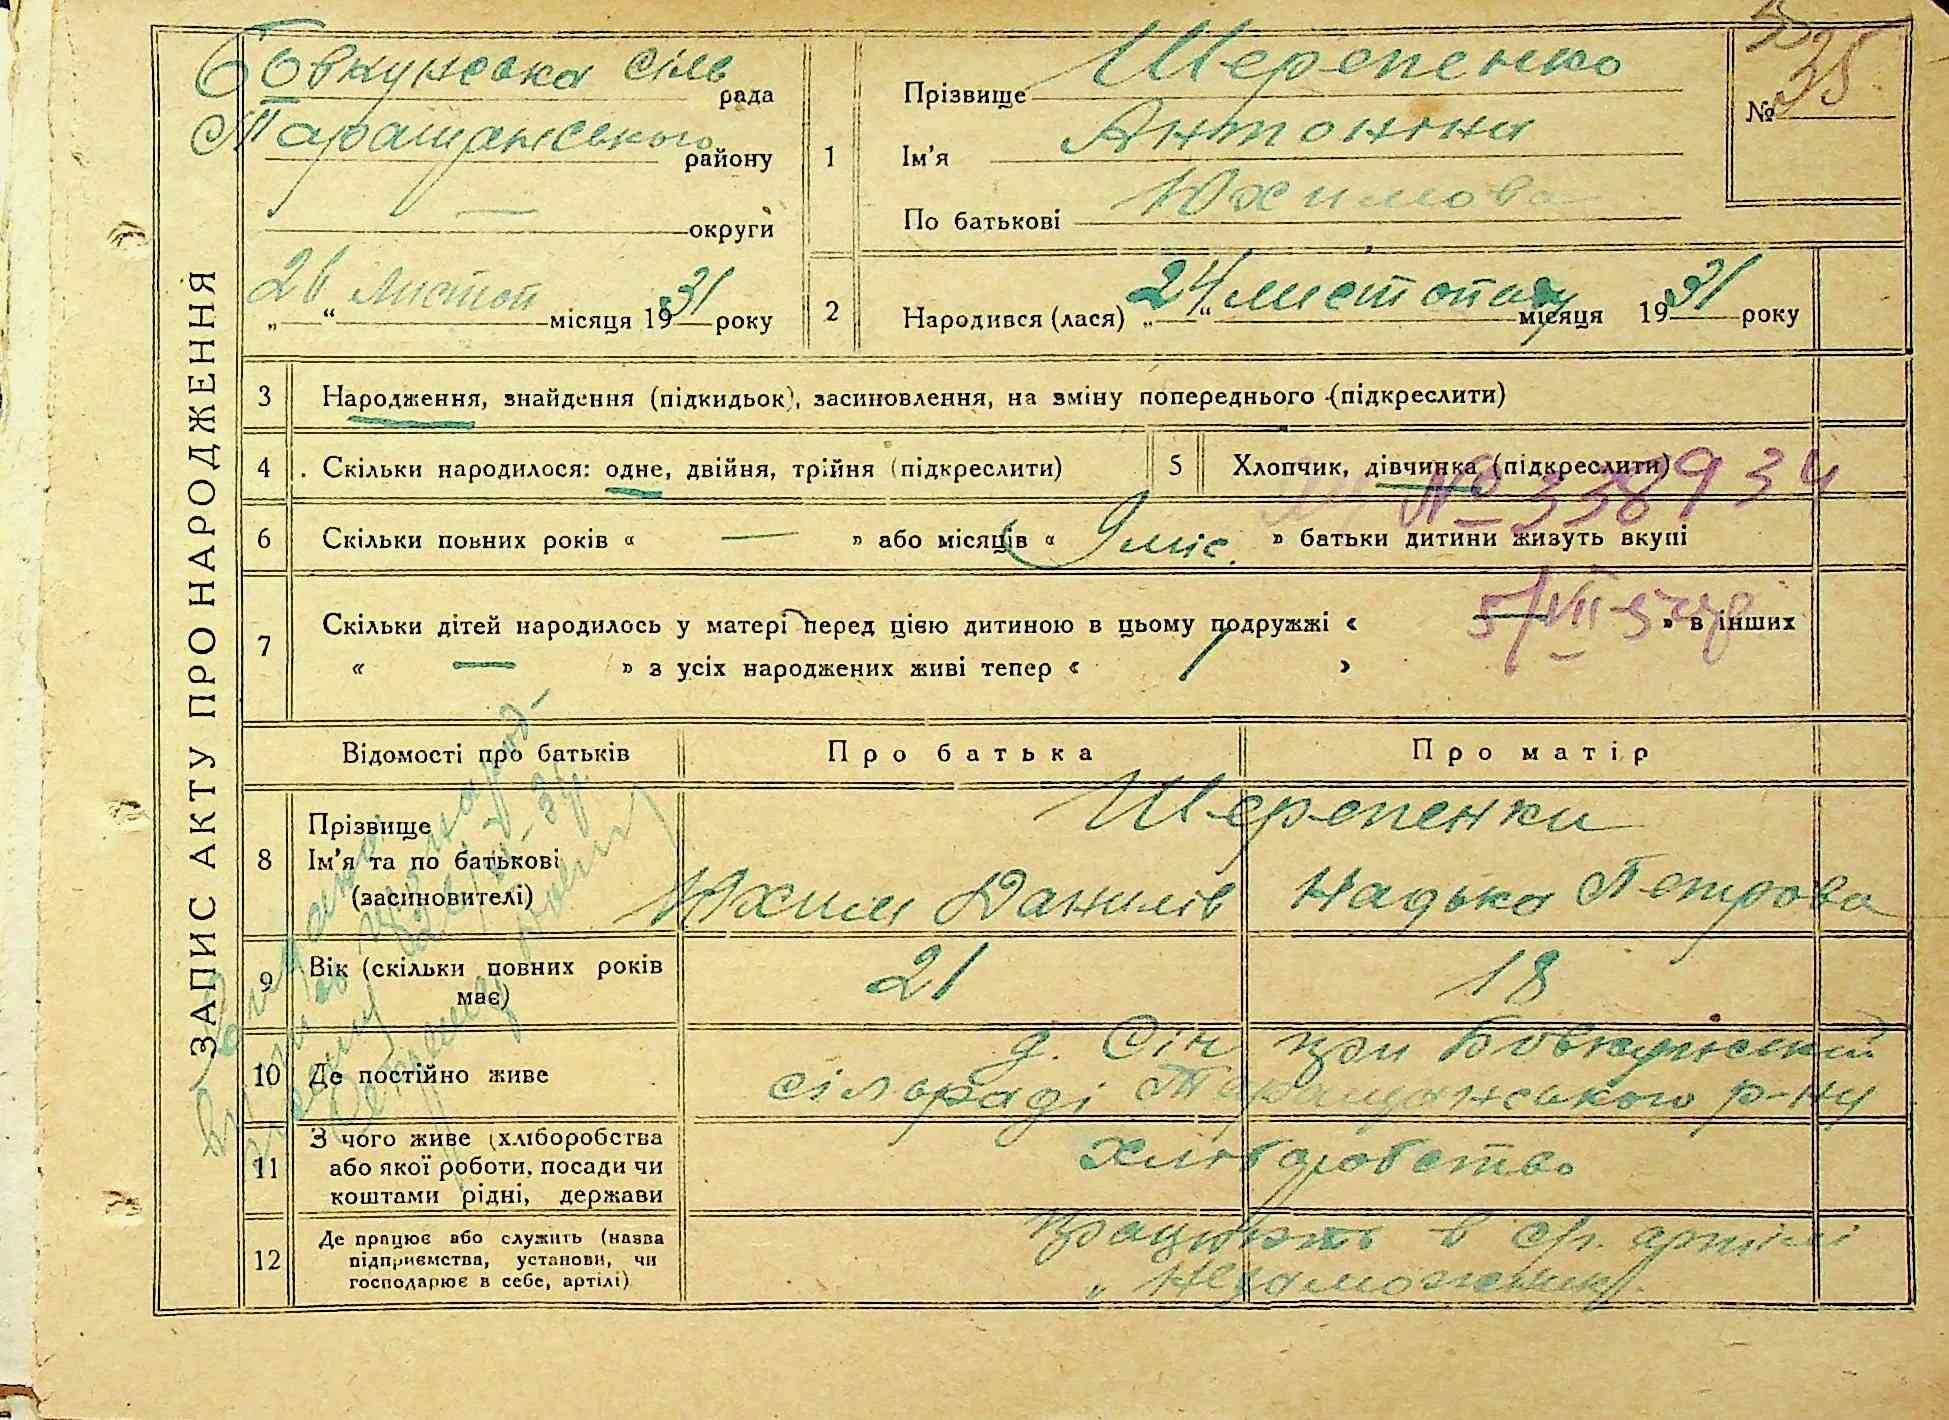 ЗАПИС АКТУ ПРО НАРОДЖЕННЯ
Бовкунська сіль рада
Таращанського району
— округи
„26“ листоп місяця 1931 року
1
Прізвище Шерепенко
Ім'я Антоніна
По батькові Юхимова
№ 35
2
Народився (лася) „24“ листопаду місяця 1931 року
3 Народження, знайдення (підкидьок), засиновлення, на зміну попереднього (підкреслити)
4 Скільки народилося: одне, двійня, трійня (підкреслити)
5 Хлопчик, дівчинка (підкреслити)
№ 338934
6 Скільки повних років « — » або місяців « 9 міс. » батьки дитини живуть вкупі
5/VII-
7 Скільки дітей народилось у матері перед цією дитиною в цьому подружжі « — » в інших
« — » з усіх народжених живі тепер « 1 »
Відомості про батьків
Про батька
Про матір
8 Прізвище
Ім'я та по батькові
(засиновителі)
Шерепенки
Юхим Данилів
Надька Петрова
9 Вік (скільки повних років
має)
21
18
10 Де постійно живе
д. Січ при Бовкунській
сільраді Таращанського р-ну
11 З чого живе (хліборобства
або якої роботи, посади чи
коштами рідні, держави
Хліборобство
12 Де працює або служить (назва
підприємства, установи, чи
господарює в себе, артілі)
працюють в с/г. артілі
„Незаможник".